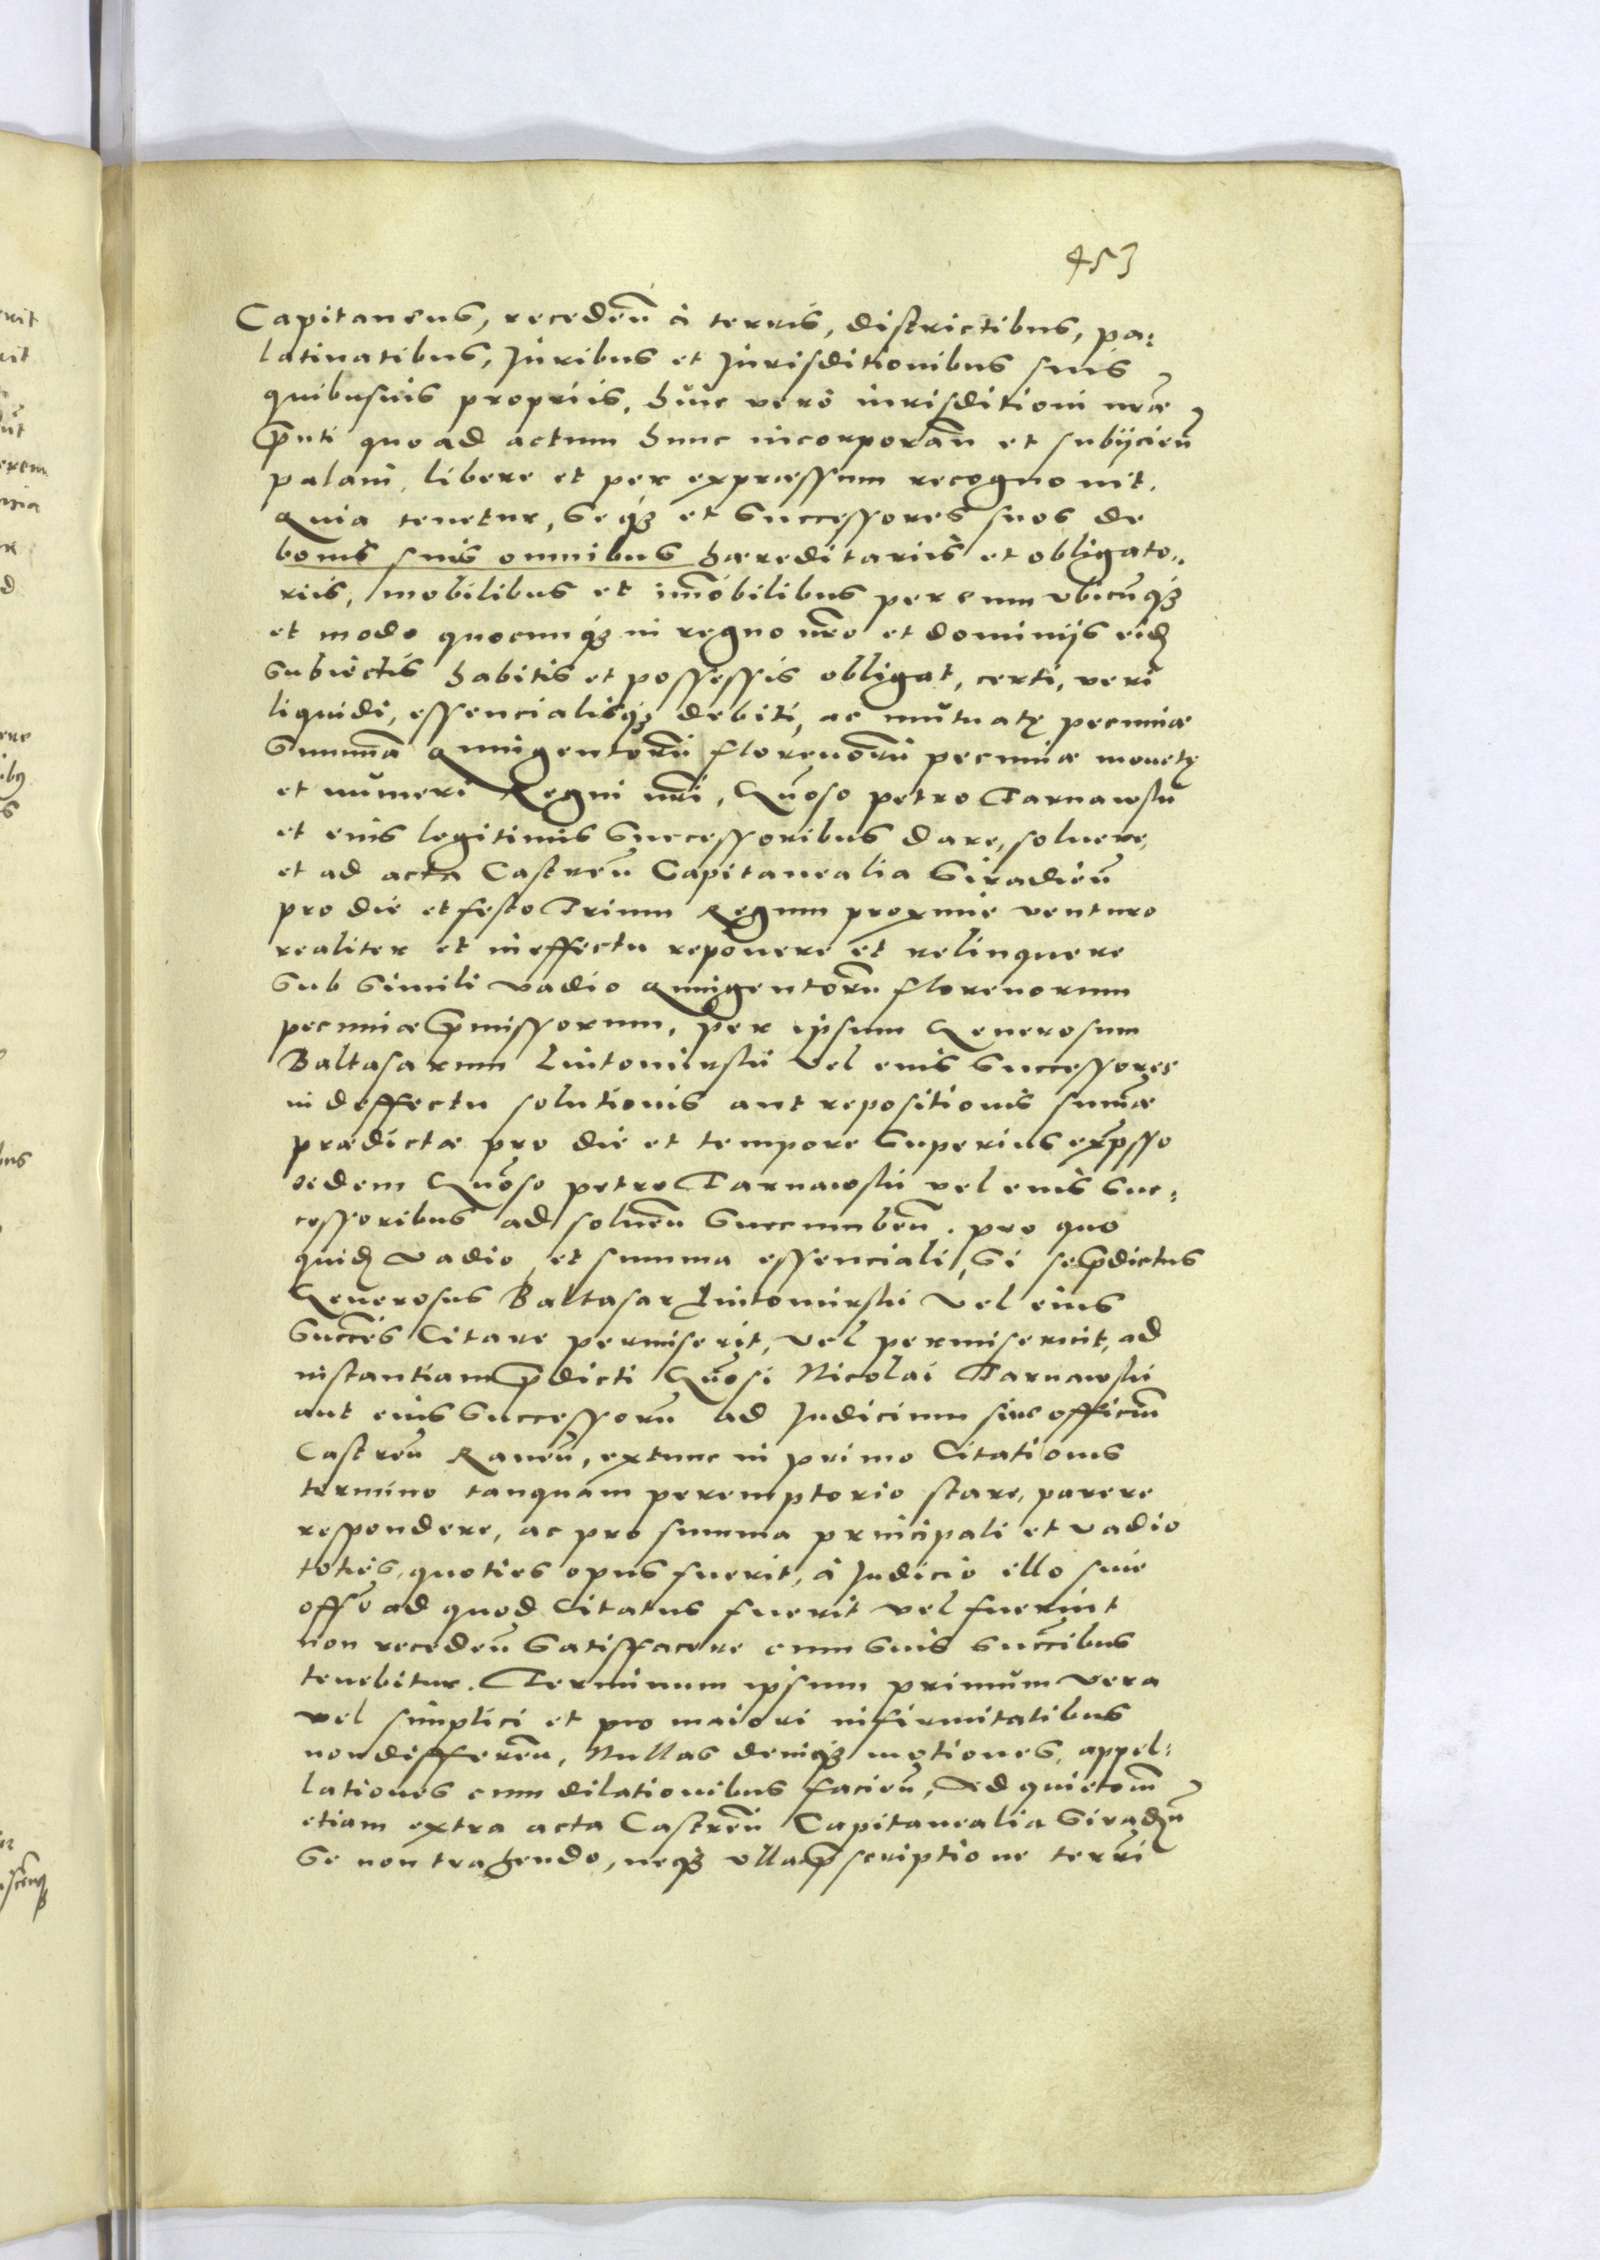 453
Capitaneus, recedeñ à terris, districtibus, pa:
latinatibus, Iuribus et Iurisditionibus suis
quibusuis propriis, huic vero iurisditioni nr̃æ
p̃nti quo ad actum hunc incorporañ et subijcieñ
palam, libere et per expræssum recognouit.
Quia tenetur, Seqȝ et Successores suos de
bonis suis omnibus hæreditariis et obligato..
riis, mobilibus et im̃obilibus per eum vbicũqȝ
et modo quocunqȝ in regno nr̃o et dominijs eid̃
subiectis habitis et possessis obligat, certi, veri
liquidi, essencialisqȝ debiti, ac mutuatę pecuniæ
Summã Quingentorũ florenorũ pecuniæ monetę
et numeri Regni nr̃i, Gñoso petro Tarnawskj
et eius legitimis Successoribus dare, soluere,
et ad acta Castreñ Capitanealia Siradieñ
pro die et festo Trium Regum proxime venturo
realiter et in effectu reponere et relinquere
Sub Simili vadio Quingentorũ florenorum
pecuniæ p̃missorum, per ipsum Generosum
Baltasarum Lutomirskj vel eius Successores
in deffectu solutionis aut repositionis sum̃æ
prædictæ pro die et tempore Superius exp̃sso
eedem Gñoso petro Tarnawskj vel eius Suc:
cessoribus ad solueñ Succumbeñ. pro quo
quid̃ vadio, et summa essenciali, Si sep̃dictus
Generosus Baltasar Lutomirskj vel eius
Succ̃es Citare permiserit, vel permiserint, ad
instantiam p̃dicti Gñosi Nicolai Tarnawskj
aut eius Successorũ ad Iudicium siue officiũ
Castreñ Raueñ, extunc in primo Citationis
termino tanquam peremptorio stare, parere
respondere, ac pro summa principali et vadio
toties, quoties opus fuerit, à Iudicio illo siue
offõ ad quod Citatus fuerit vel fuerint
non recedeñ Satisfacere cum Suis Succ̃ibus
tenebitur. Terminum ipsum primum vera
vel simplici et pro maiori infirmitatibus
non differeñ, Nullas deniqȝ motiones, appel:
lationes cum dilationibus facieñ, Ad quietom̃
etiam extra acta Castreñ Capitanealia Siradieñ
Se non trahendo, neqȝ vlla p̃scriptione terri